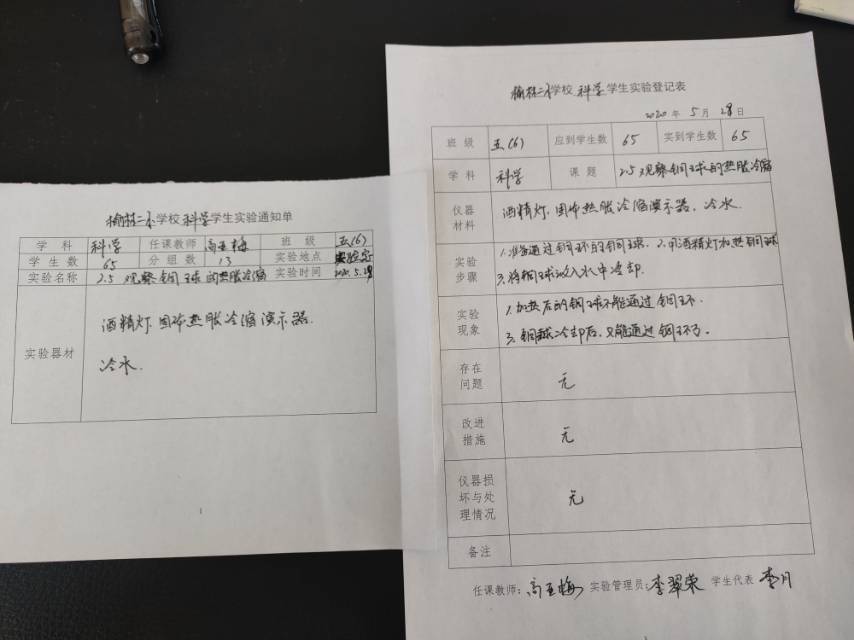 榆林二小学校科学学生实验通知单
学科 科学 任课教师 高亚梅 班级 五(6)
学生数 65 分组数 13 实验地点 实验室
实验名称 2.5 观察铜球的热胀冷缩 实验时间 2020.5.28
实验器材
酒精灯.固体热胀冷缩演示器.
冷水.
1
榆林二小学校科学学生实验登记表
2020年5月28日
班级 五(6) 应到学生数 65 实到学生数 65
学科 科学 课题 2.5观察铜球的热胀冷缩
仪器材料 酒精灯.固体热胀冷缩演示器、冷水.
实验步骤
1.准备通过铜环的铜球. 2.用酒精灯加热铜球
3.将铜球放入水中冷却.
实验现象
1.加热后的铜球不能通过铜环.
3.铜球冷却后,又能通过铜环了。
存在问题 无
改进措施 无
仪器损坏与处理情况 无
备注
任课教师:高亚梅 实验管理员:李翠荣 学生代表 李月